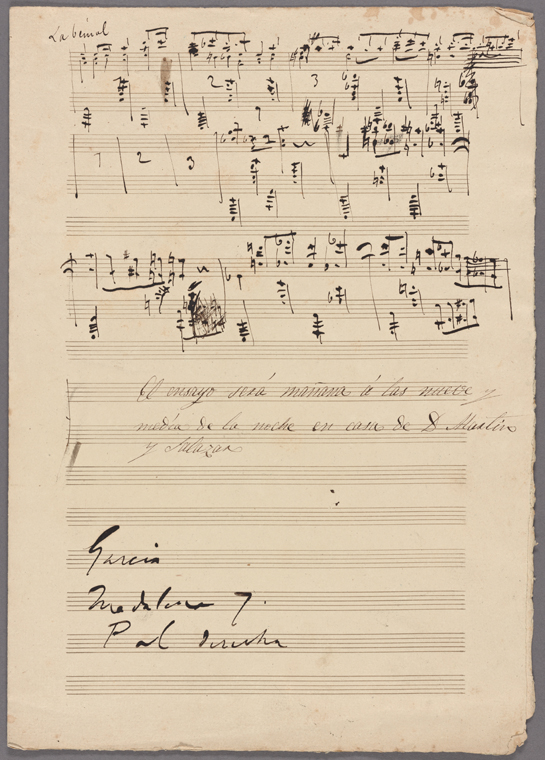 La bémol
2 3
1 2 3
El ensayo será mañana á las nueve y
media de la noche en casa de D Martin
y Salazar
Garcia
Madalena 7.
Pal derecha